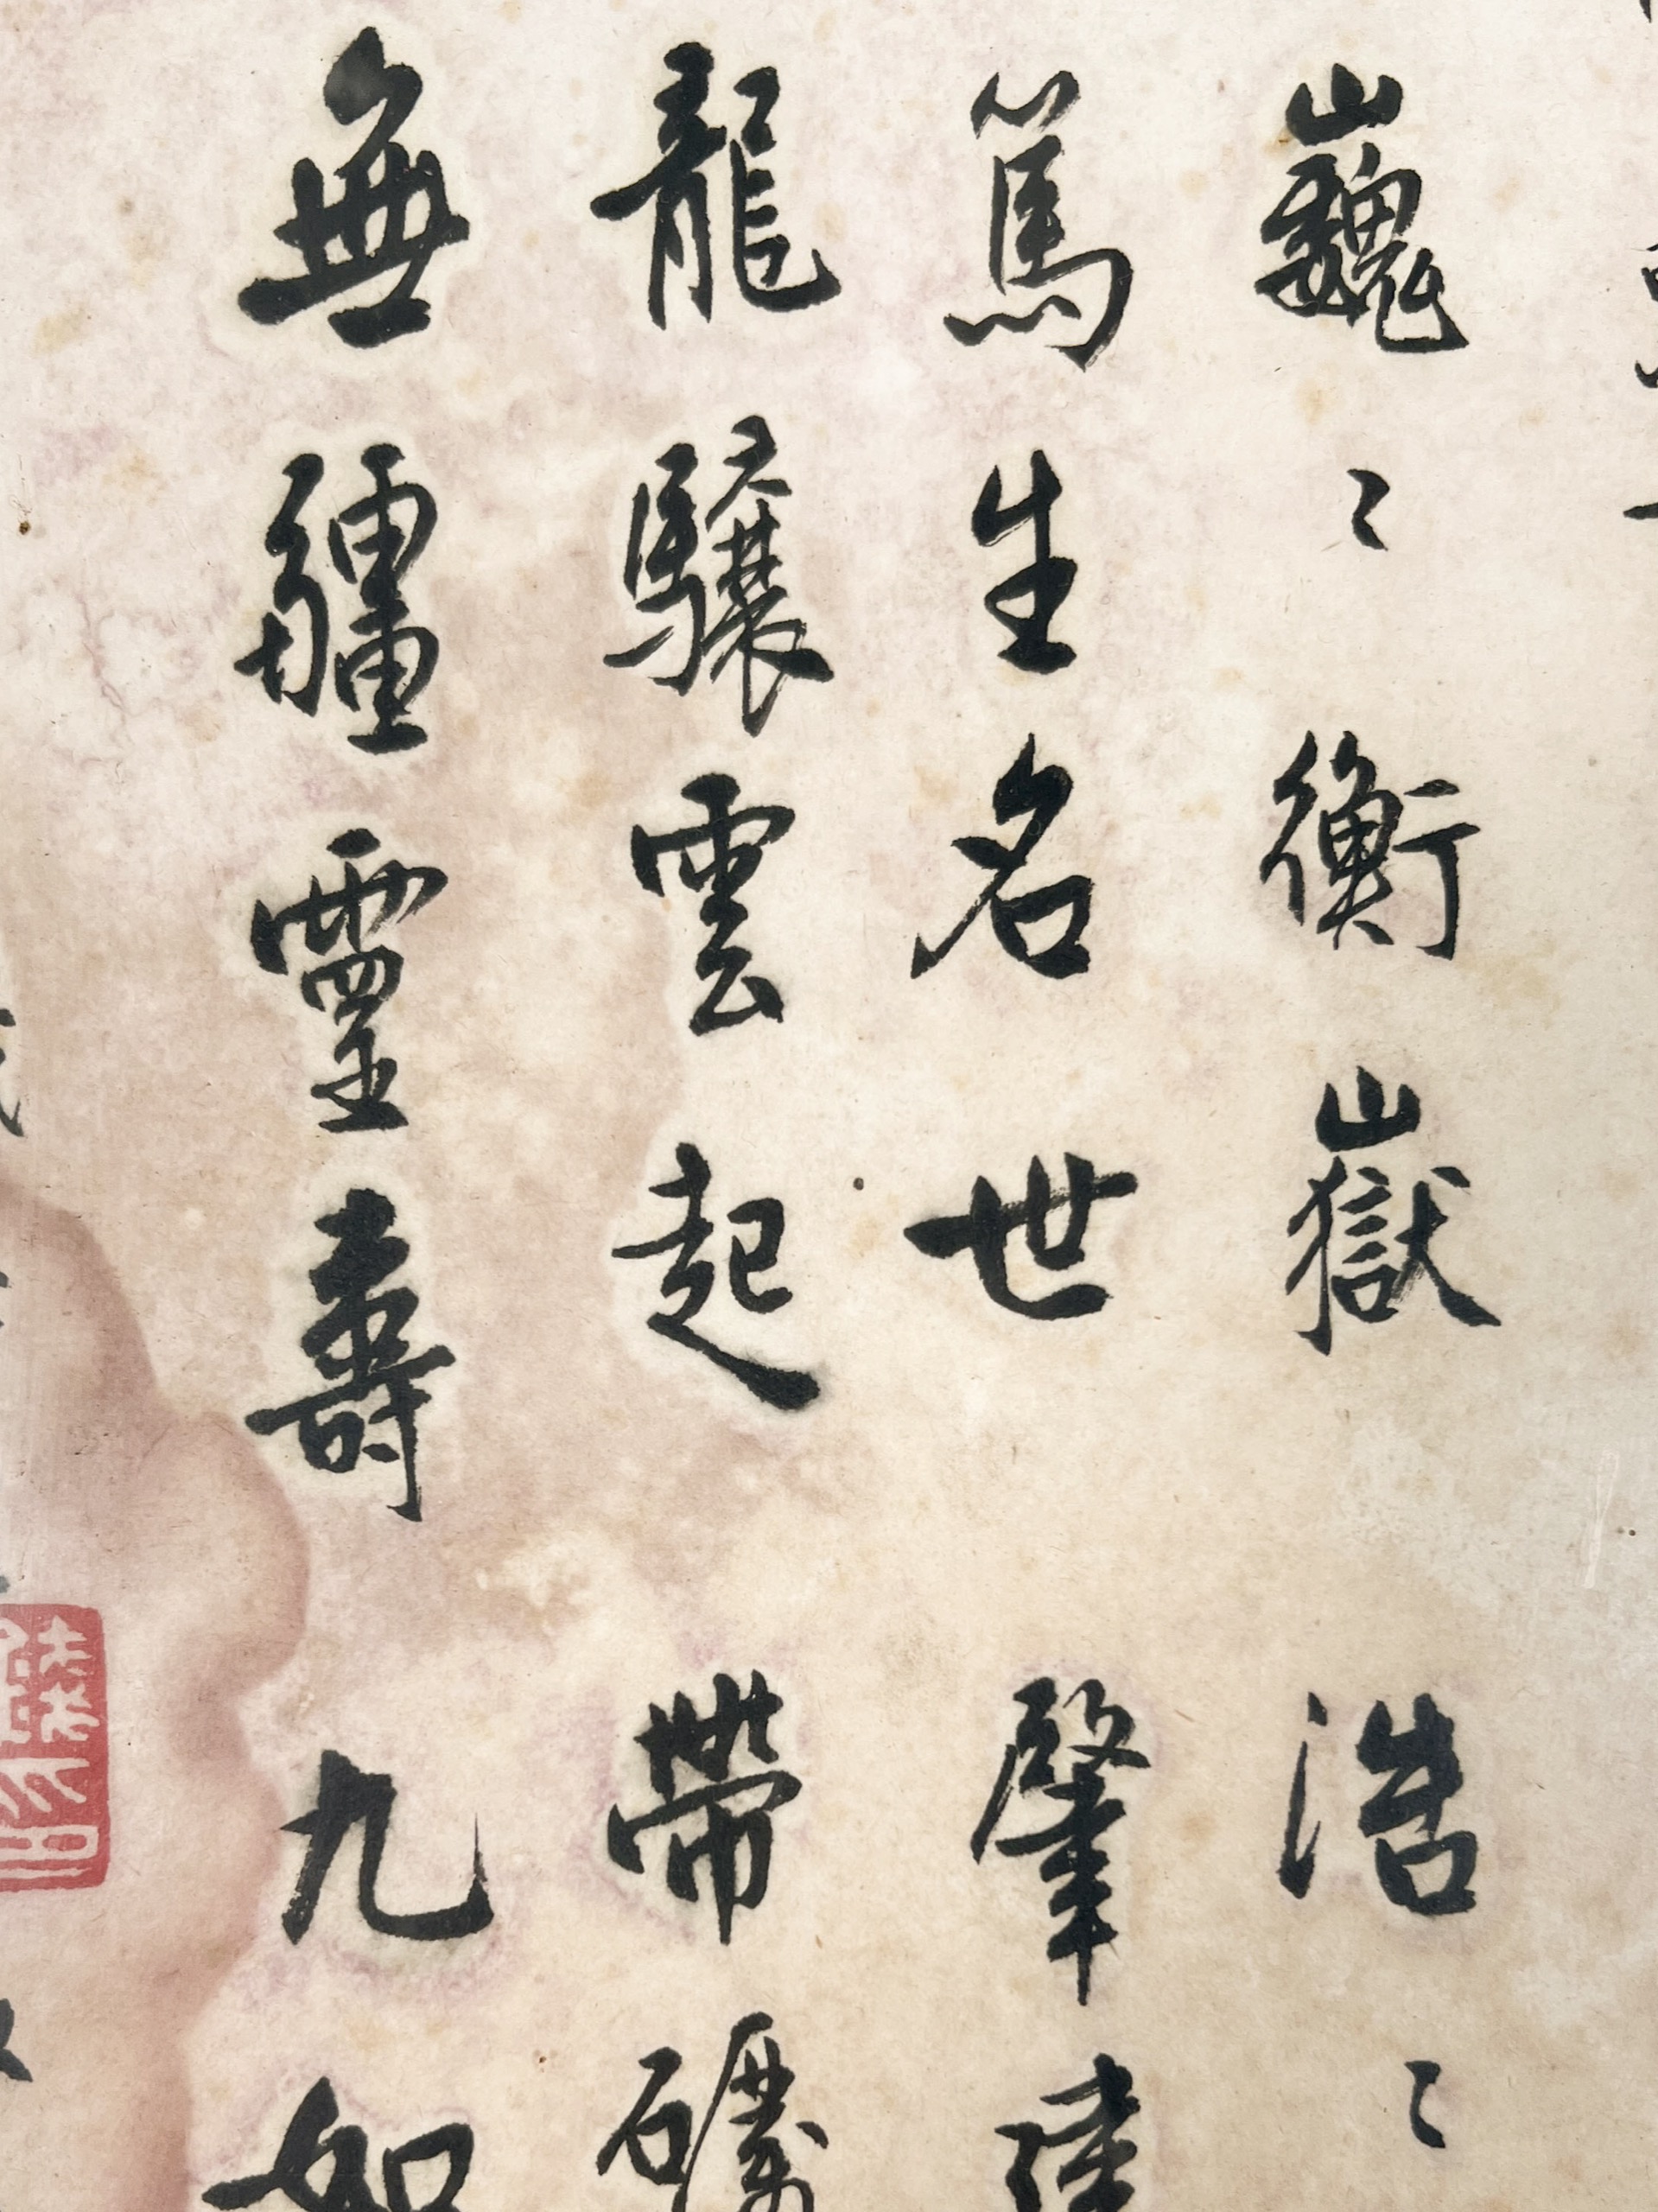 巍〻衡嶽 浩〻
篤生名世 肇建
龍驤雲起 帶礪
無疆靈壽 九如